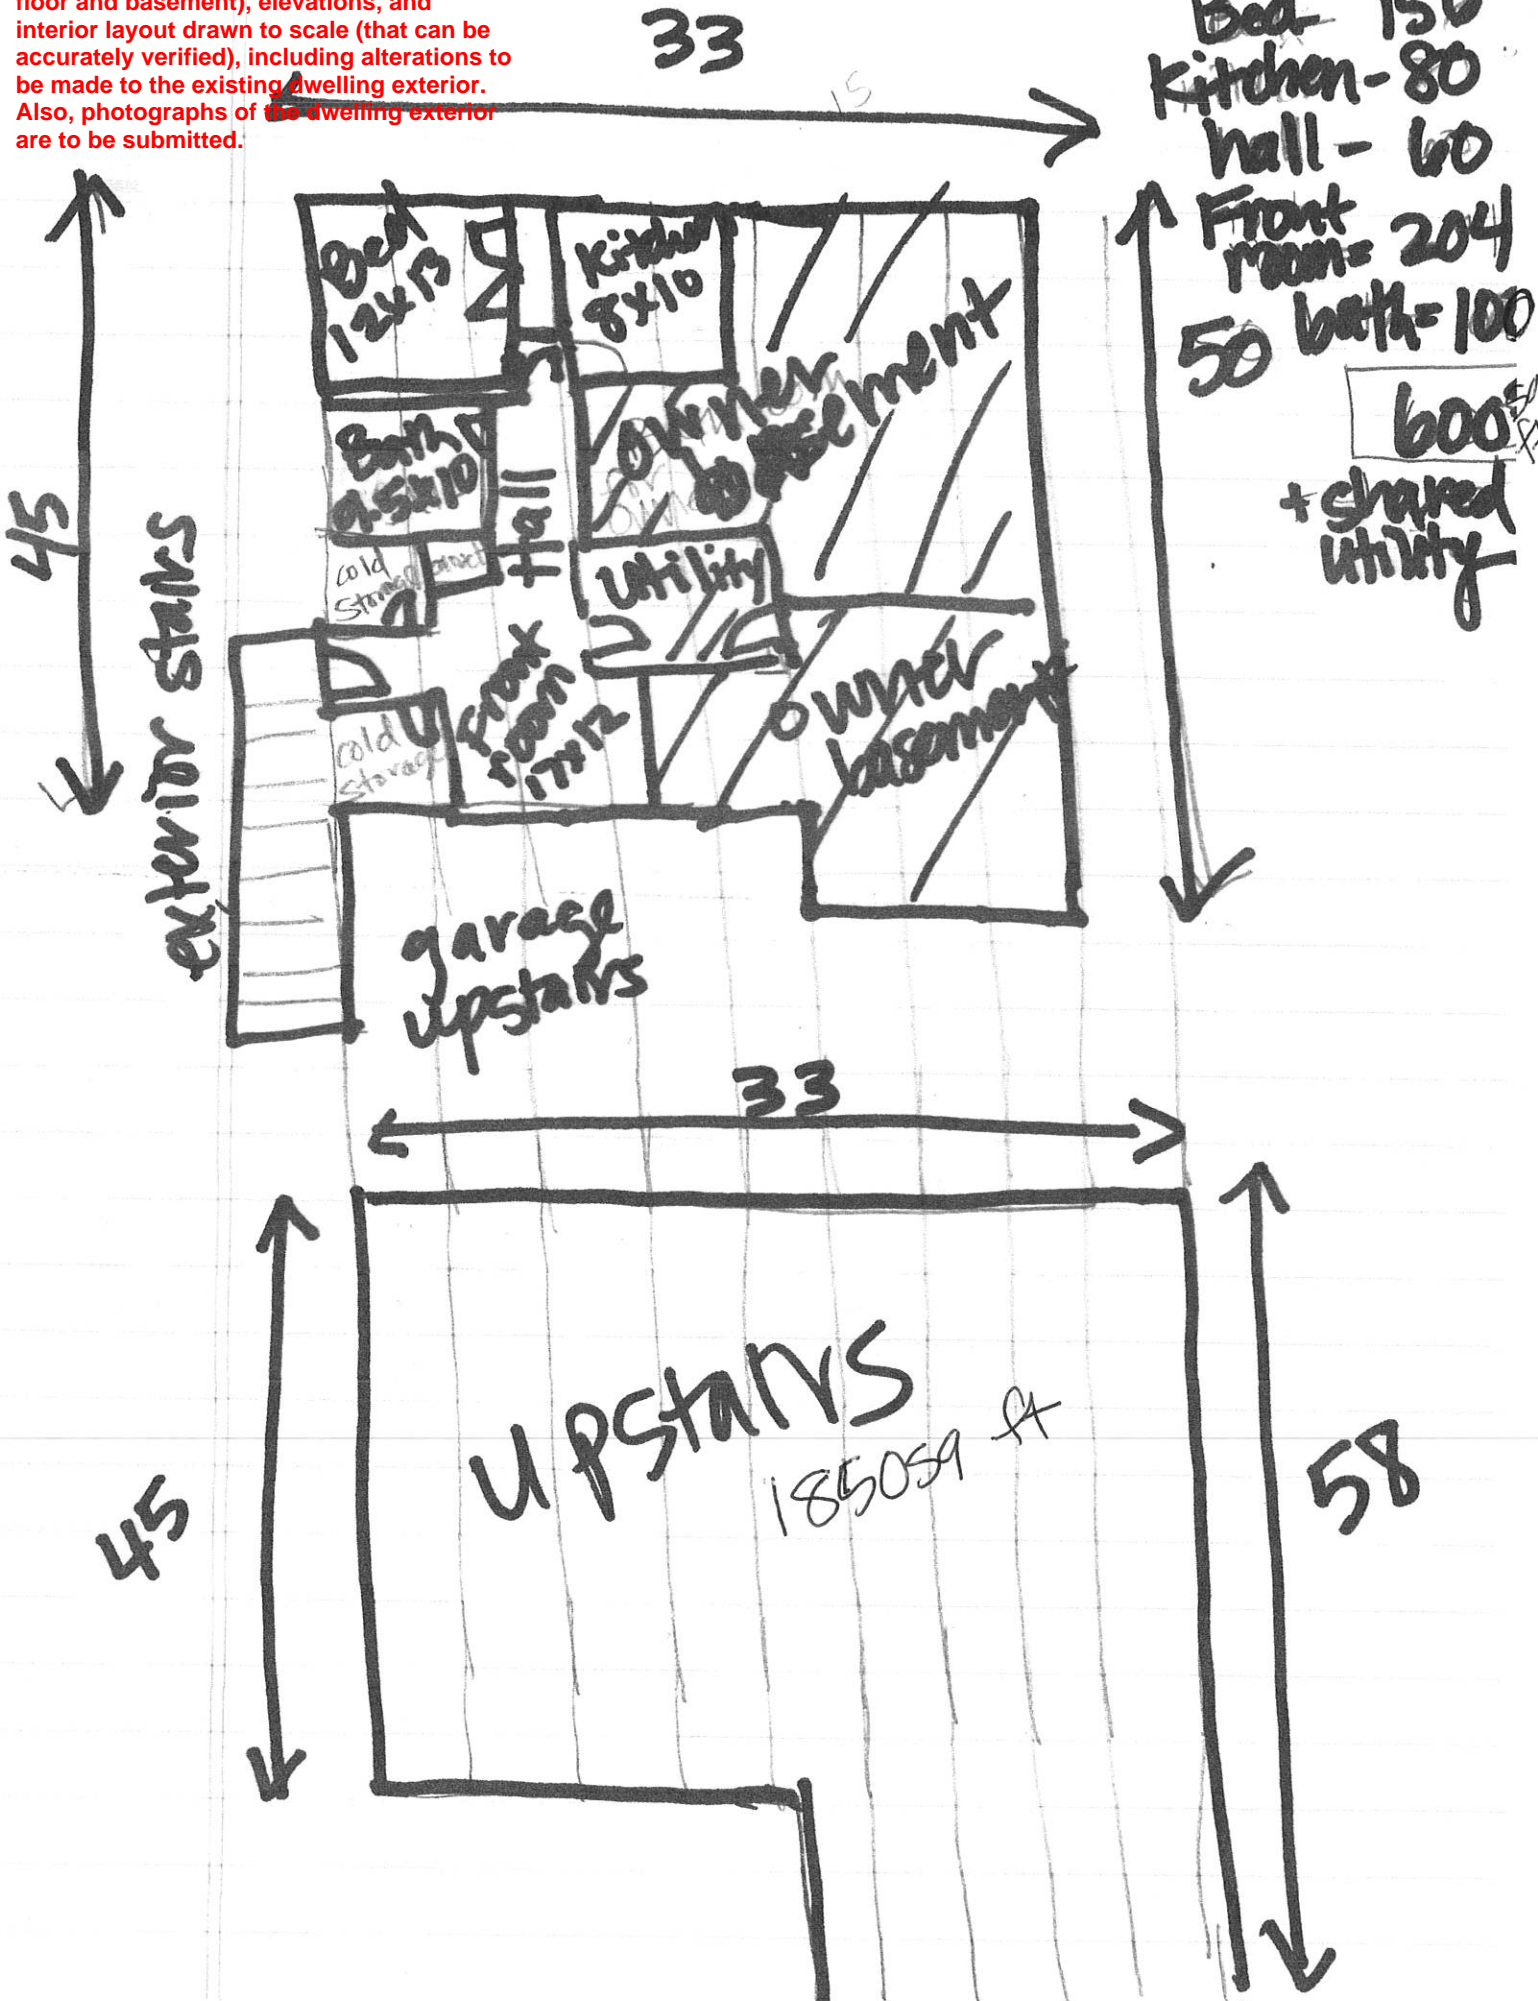 floor and basement), elevations, and
interior layout drawn to scale (that can be
accurately verified), including alterations to
be made to the existing dwelling exterior.
Also, photographs of the dwelling exterior
are to be submitted.
33
15
Bed - 156
Kitchen - 80
hall - 60
Front
room = 204
bath = 100
600 sq ft
+ shared
utility
45
50
exterior stairs
Bed
12x13
Kitchen
8x10
owner
basement
Bath
9.5x10
Hall
Utility
cold
storage
Front
room
17x12
cold
storage
owner
basement
garage
upstairs
33
45
58
upstairs
1850sq ft